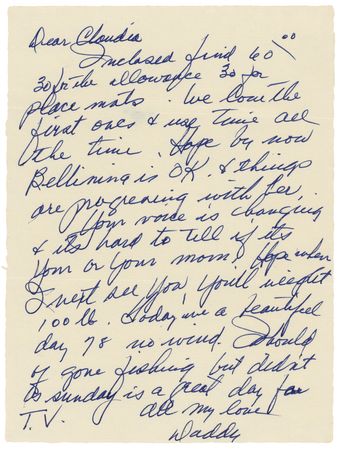 Dear Claudia
Inclosed find 60.00
30 for the allowance 30 for
place mats. We love the
first ones & use time all
the time. Hope by now
Bellimina is OK. & things
are progresing with her.
Your voice is changing
& its hard to tell if its
your or your mom. Hope when
I next see you, you'll weight
100 lb. Today was a beautiful
day 78 no wind. Should
of gone fishing but didn't
as sunday is a great day for
T.V. all my love
Daddy